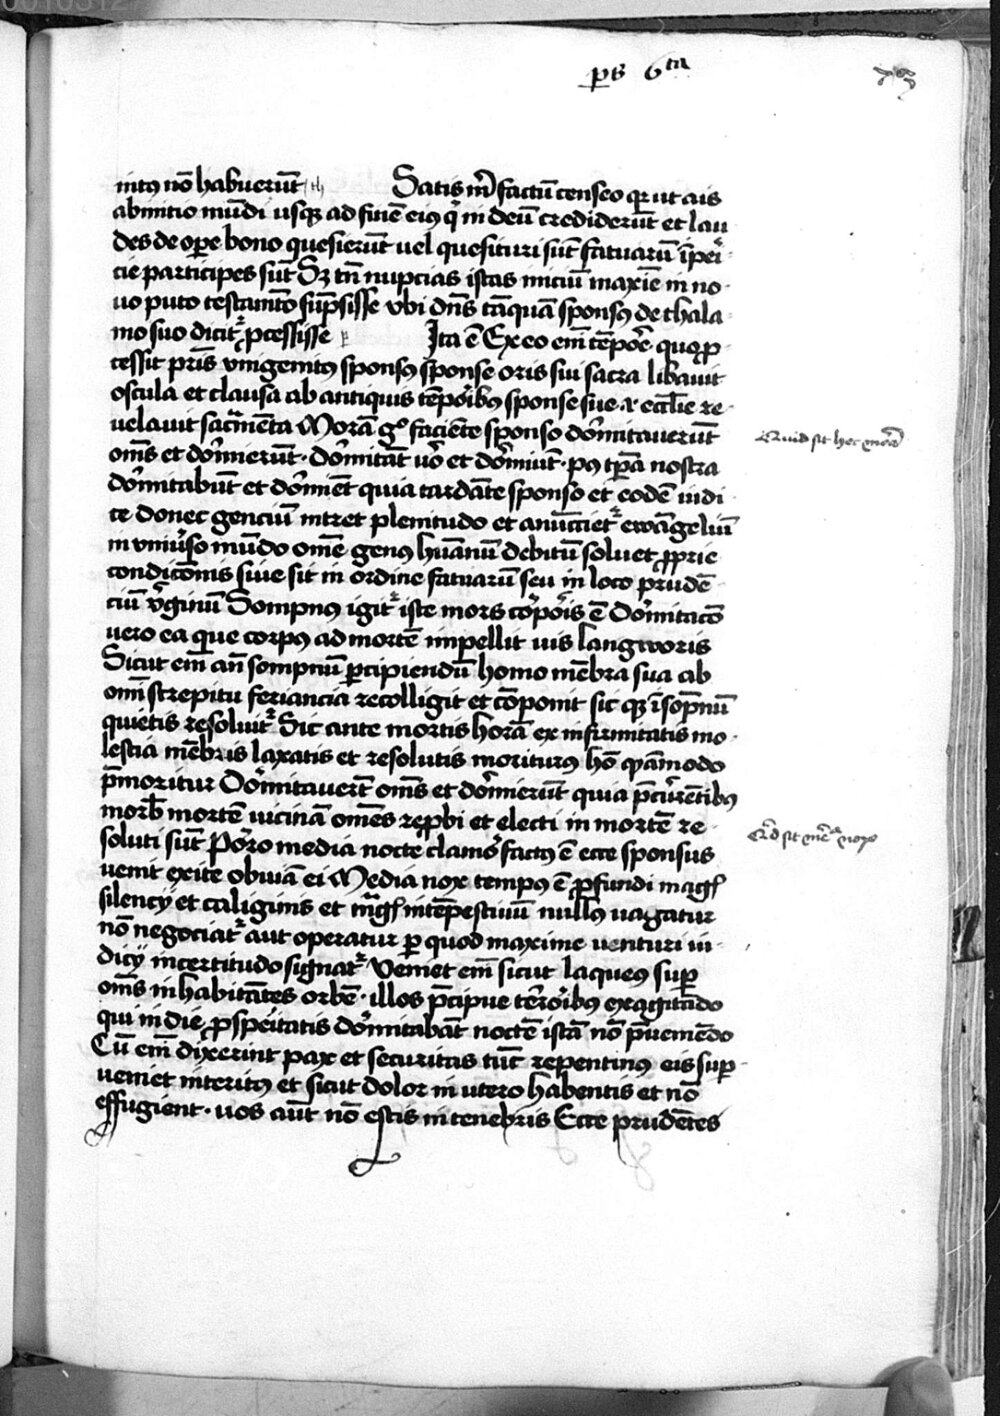 ps 6ta
75
intꝰ nō habuerūt th Satis m̄ factū censeo qꝛ ut ais
ab initio mūdi usqꝫ ad finē eiꝰ q̇ in deū crediderūt et lau
des de oꝑe bono quesierūt uel quesituri sūt fatuarū īperi
cie participes sūt Sꝫ tn̄ nupcias istas iniciū maxīe in no
uo puto testamēto sūpsisse vbi dn̄s tāquā sponsꝰ de thala
mo suo dicit᷑ ꝓcessisse p Ita ē Ex eo em̄ tēpore quo ꝓ
cessit pr̄is vnigenitꝰ sponsꝰ sponse oris sui sacra libauit
oscula et clausa ab antiquis tēporibꝰ sponse sue .i. eccl̄ie re
uelauit sacramēta Morā gͦ faciēte sponso dormitauerūt
om̄s et dormierūt · dormitāt vͦo et dormiūt · pꝰ tp̄a nostra
dormitabūt et dormiēt quia tardāte sponso et eodē iudi
ce donec genciū intret plenitudo et anūcciet᷑ ewāgeliū
in vniuerso mūdo omē genꝰ hūanū debitū soluet ꝓprie
condicōnis siue sit in ordine fatuarū seu in loco prudē
ciū v̄ginū Sompnꝰ igit᷑ iste mors corporis ē Dormitacō
vero ea que corpꝰ ad mortē impellit uis langworis
Sicut em̄ an̄ sompnū ꝑcipiendū homo mēbra sua ab
omī strepitu feriancia recolligit et cōponit sic qꝫ ī sopnū
quietis resoluit᷑ Sic ante mortis horā ex infirmitatis mo
lestia mēbris laxatis et resolutis moriturꝰ hō quāmodo
p̄moritur Dormitauerūt om̄s et dormierūt quia p̄currētibꝰ
morb̄ mortē uicinā omēs reꝓbi et electi in mortē re
soluti sūt Porro media nocte clamor factꝰ ē ecce sponsus
uenit exite obuiā ei Media nox tempꝰ ē ꝓfundi magꝭ
silencij et caliginis et mgꝭ intēpestiuū nullꝰ uagatur
nō negociat᷑ aut operatur ꝑ quod maxime uenturi iu
dicij incertitudo signat᷑ Veniet em̄ sicut laqueꝰ suꝑ
om̄s inhabitātes orbē · illos p̄cipue terroribꝰ exagitādo
qui in die ꝓsperitatis dormitabāt noctē istā nō p̄ueniēdo
Cū em̄ dixerint pax et securitas tūc repentinꝰ eis suꝑ
veniet interitꝰ et sicut dolor in utero habentis et nō
effugient · uos aūt nō estis in tenebris Ecce prudētes
Quid sit hec mora
Qͥd sit mēͣ nox